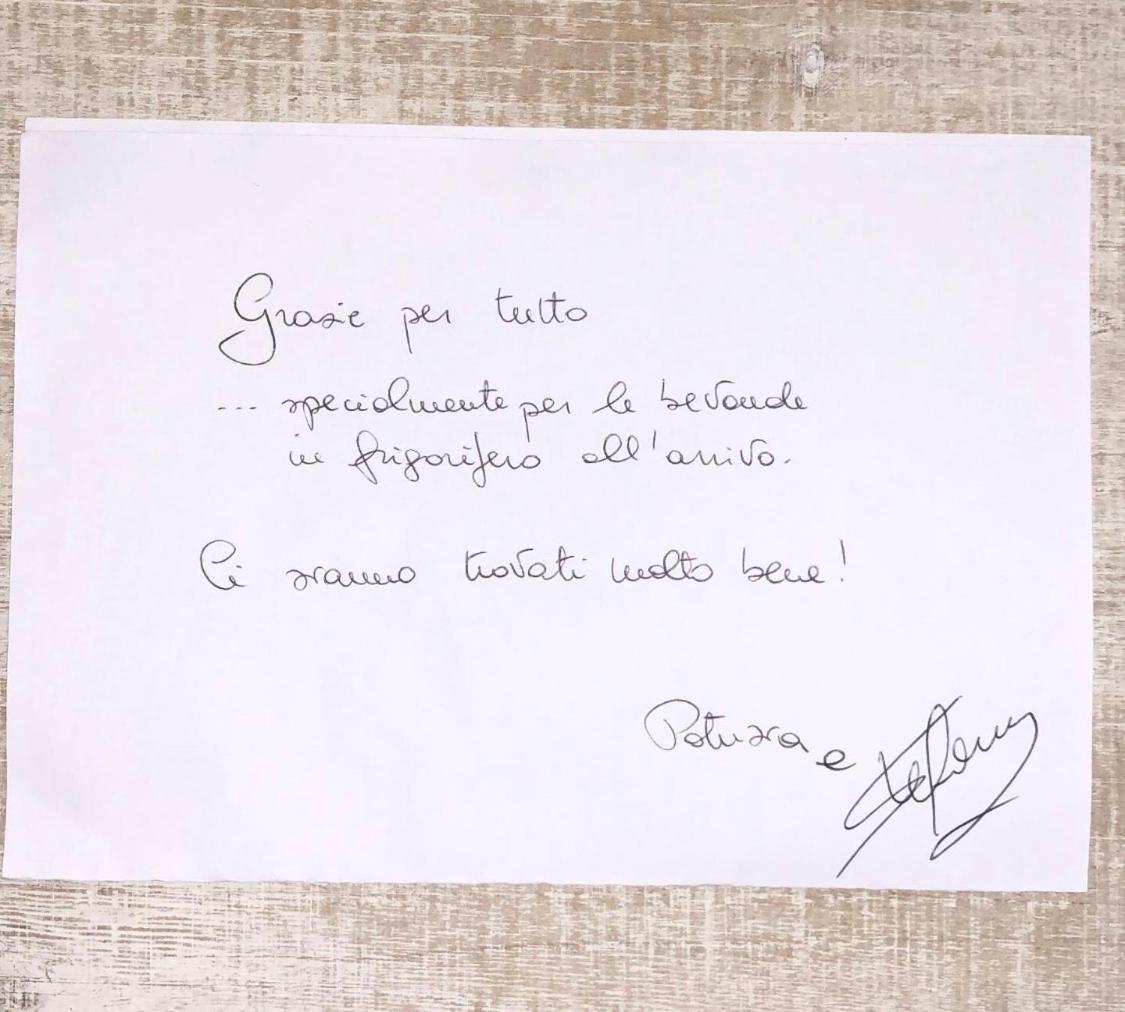 Grazie per tutto
... specialmente per le bevande
in frigorifero all'arrivo.
Ci siamo trovati molto bene!
e